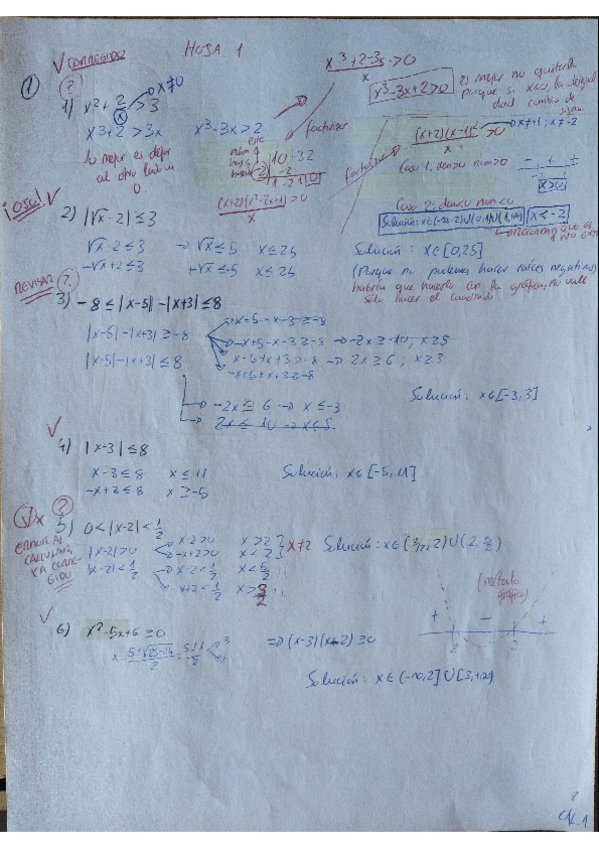 √ CORREGIDO HOJA 1
①
?
1) x² + 2/x > 3 → x≠0
x³+2 > 3x x³-3x > 2
Lo mejor es dejar
al otro lado un
0.
factorizar
1 0 -3 2
(x+2)(x²-2x+1) > 0
x
x³+2-3x > 0
x
x³-3x+2 > 0
es mejor no quitarla
porque si x<0, la desigual
dad cambia de
signo.
factorizar
(x+2)(x-1)² > 0 → x≠1, x≠-2
x
Caso 1: den>0 num>0
x>0
Caso 2: den<0 num<0
x<-2
Solución: x∈(-∞,-2)∪(0,1)∪(1,+∞)
¡OJO! √
2) |√x - 2| ≤ 3
√x - 2 ≤ 3 → √x ≤ 5 x ≤ 25
-√x + 2 ≤ 3 +√x ≤ -5 x ≤ 25
Solución: x∈[0,25]
(Porque no podemos hacer raíces negativas)
habría que hacerla con la gráfica, no vale
solo hacer el cuadrado
REVISAR ?
3) -8 ≤ |x-5| - |x+3| ≤ 8
|x-5| - |x+3| ≥ -8
|x-5| - |x+3| ≤ 8
x-5-x-3 ≥ -8
-x+5-x-3 ≥ -8 → -2x ≥ -10, x ≥ 5
x-5+x+3 ≥ -8 → 2x ≥ 6, x ≥ 3
-x+5+x+3 ≥ -8
→ -2x ≤ 6 → x ≤ -3
→ 2x ≤ 10 → x ≤ 5
Solución: x∈[-3,3]
√
4) |x-3| ≤ 8
x-3 ≤ 8 x ≤ 11
-x+3 ≤ 8 x ≥ -5
Solución: x∈[-5,11]
√x ?
5) 0 < |x-2| < 1/2
ERROR AL
CALCULAR,
YA CORRE-
GIDO
|x-2| > 0
x-2 > 0 x > 2
-x+2 > 0 x < 2
x≠2
|x-2| < 1/2
x-2 < 1/2 x < 5/2
-x+2 < 1/2 x > 3/2
Solución: x∈(3/2, 2)∪(2, 5/2)
√
6) x²-5x+6 ≥ 0
x = 5±√25-24 / 2 = 5±1 / 2 3 2
⇒ (x-3)(x-2) ≥ 0
(método
gráfico)
+ - +
2 3
Solución: x∈(-∞,2]∪[3,+∞)